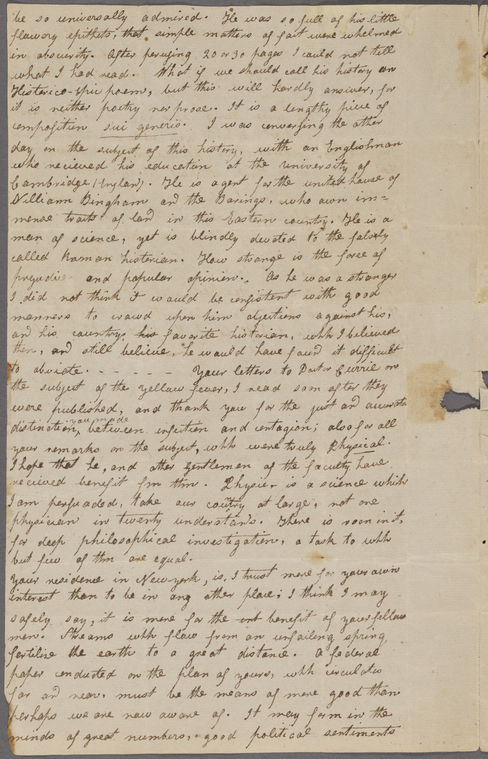 be so universally admired. He was so full of his little
flowery epithets, that simple matters of fact were whelmed
in obscurity. After perusing 20 or 30 pages I could not tell
what I had read. What if we should call his history an
Historico-Epic poem, but this will hardly answer, for
it is neither poetry nor prose. It is a lengthy piece of
composition sui generis. I was conversing the other
day on the subject of this history, with an Englishman
who recieved his education at the university of
Cambridge (England). He is agent for the united house of
William Bingham and the Barings, who own im-
mense tracts of land in this Eastern country. He is a
man of science, yet is blindly devoted to the falsely
called Roman historian. How strange is the force of
prejudice and popular opinion. As he was a stranger
I did not think it would be consistent with good
manners to crowd upon him objections against his,
and his country's favorite historian, whh I believed
then, and still believe, he would have found it difficult
to obviate. - - - - - Your letters to Doctr Currie on
the subject of the yellow fever, I read soon after they
were published, and thank you for the just and accurate
distinction, you made between infection and contagion; also for all
your remarks on the subject, whh were truly Physical.
I hope that he, and other Gentlemen of the faculty have
recieved benefit fm thm. Physic is a science which
I am persuaded, take our coutry at large, not one
physician in twenty understands. There is room in it,
for deep philosophical investigation, a task to whh
but few of thm are equal.
Your residence in New york, is, I trust more for your own
interest than to be in any other place; I think I may
safely say, it is more for the benefit of your fellow
men. Streams whh flow from an unfailing spring
fertilize the earth to a great distance. A federal
paper conducted on the plan of yours, whh circulates
far and near must be the means of more good than
perhaps we are now aware of. It may form in the
minds of great numbers, good political sentiments